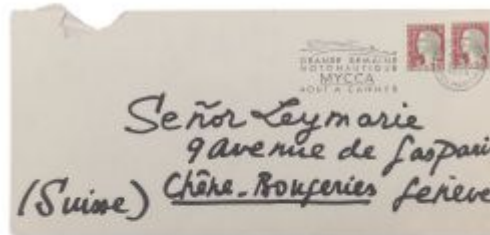 GRANDE SEMAINE
MOTONAUTIQUE
MYCCA
AOUT A CANNES
Señor Leymarie
9 avenue de Gaspari
(Suisse) Chêne-Bougeries Genève